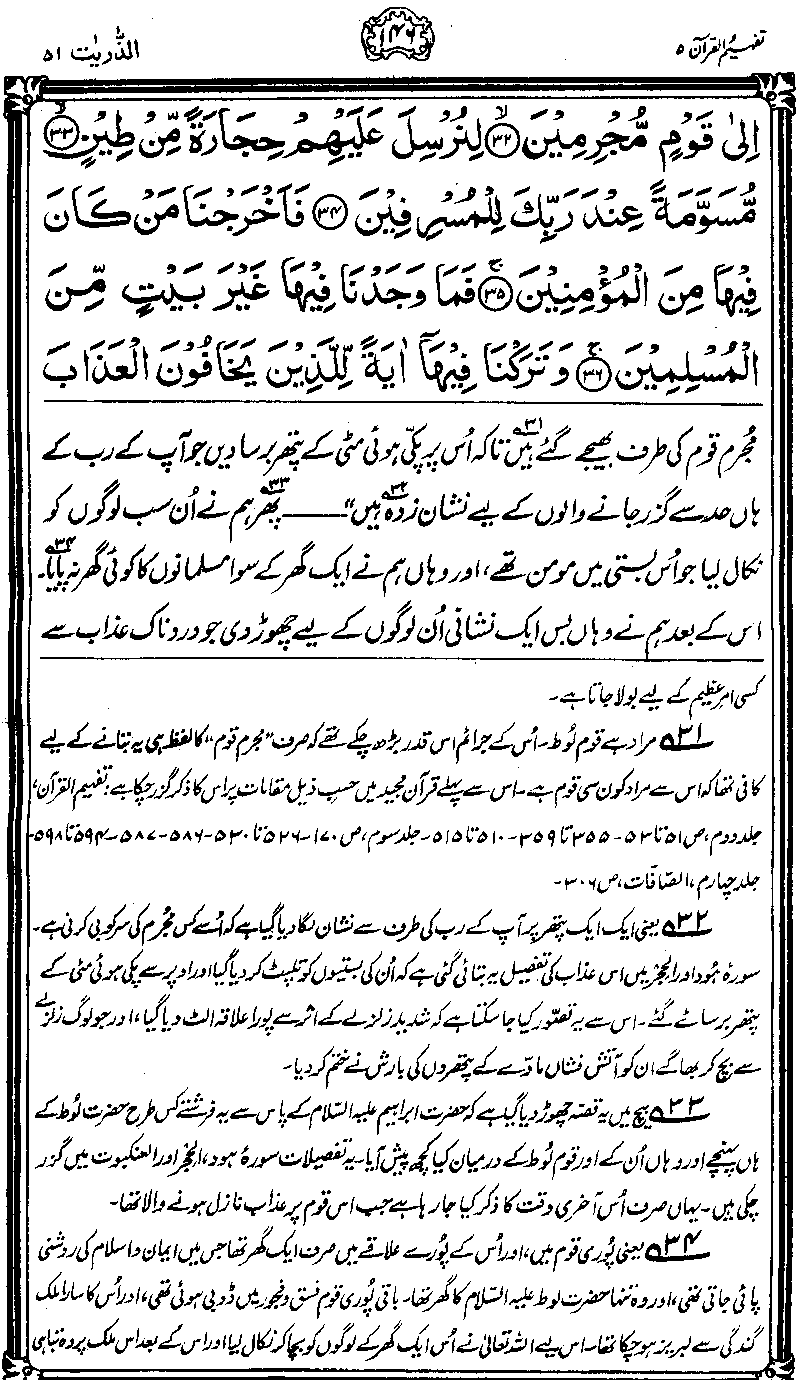 تفہیم القرآن ۵
۱۴۶
الذّٰریٰت ۵۱
اِلٰى قَوْمٍ مُّجْرِمِيْنَ ﴿۳۲﴾ لِنُرْسِلَ عَلَيْهِمْ حِجَارَةً مِّنْ طِيْنٍ ﴿۳۳﴾
مُّسَوَّمَةً عِنْدَ رَبِّكَ لِلْمُسْرِفِيْنَ ﴿۳۴﴾ فَاَخْرَجْنَا مَنْ كَانَ
فِيْهَا مِنَ الْمُؤْمِنِيْنَ ﴿۳۵﴾ فَمَا وَجَدْنَا فِيْهَا غَيْرَ بَيْتٍ مِّنَ
الْمُسْلِمِيْنَ ﴿۳۶﴾ وَتَرَكْنَا فِيْهَآ اٰيَةً لِّلَّذِيْنَ يَخَافُوْنَ الْعَذَابَ
مُجرم قوم کی طرف بھیجے گئے ہیں۳۱ تاکہ اُس پر پکی ہوئی مٹی کے پتھر برسا دیں جو آپ کے رب کے
ہاں حد سے گزر جانے والوں کے لیے نشان زدہ۳۲ ہیں“ ــــــ پھر۳۳ ہم نے اُن سب لوگوں کو
نکال لیا جو اُس بستی میں مومن تھے، اور وہاں ہم نے ایک گھر کے سوا مسلمانوں کا کوئی گھر نہ پایا۳۴۔
اس کے بعد ہم نے وہاں بس ایک نشانی اُن لوگوں کے لیے چھوڑ دی جو دردناک عذاب سے
کسی امر عظیم کے لیے بولا جاتا ہے۔
۳۱؎ مراد ہے قوم لُوط۔ اُس کے جرائم اس قدر بڑھ چکے تھے کہ صرف ”مجرم قوم“ کا لفظ ہی یہ بتانے کے لیے
کافی تھا کہ اس سے مراد کون سی قوم ہے۔ اس سے پہلے قرآن مجید میں حسب ذیل مقامات پر اس کا ذکر گزر چکا ہے: تفہیم القرآن،
جلد دوم، ص ۵۱ تا ۵۳ - ۳۵۵ تا ۳۵۹ - ۵۱۰ تا ۵۱۵ - جلد سوم، ص ۱۷۰ - ۵۲۶ تا ۵۳۰ - ۵۸۶ - ۵۸۷ - ۵۹۴ تا ۵۹۸ -
جلد چہارم، الصّافات، ص ۳۰۶ -
۳۲؎ یعنی ایک ایک پتھر پر آپ کے رب کی طرف سے نشان لگا دیا گیا ہے کہ اُسے کس مُجرم کی سرکوبی کرنی ہے۔
سورۂ ہُود اور الحِجر میں اس عذاب کی تفصیل یہ بتائی گئی ہے کہ اُن کی بستیوں کو تلپٹ کر دیا گیا اور اوپر سے پکی ہوئی مٹی کے
پتھر برسائے گئے۔ اس سے یہ تصوّر کیا جا سکتا ہے کہ شدید زلزلے کے اثر سے پورا علاقہ الٹ دیا گیا، اور جو لوگ زلزلے
سے بچ کر بھاگے ان کو آتش فشاں مادّے کے پتھروں کی بارش نے ختم کر دیا۔
۳۳؎ بیچ میں یہ قصّہ چھوڑ دیا گیا ہے کہ حضرت ابراہیم علیہ السّلام کے پاس سے یہ فرشتے کس طرح حضرت لُوط کے
ہاں پہنچے اور وہاں اُن کے اور قوم لُوط کے درمیان کیا کچھ پیش آیا۔ یہ تفصیلات سورۂ ہود، الحِجر اور العنکبوت میں گزر
چکی ہیں۔ یہاں صرف اُس آخری وقت کا ذکر کیا جا رہا ہے جب اس قوم پر عذاب نازل ہونے والا تھا۔
۳۴؎ یعنی پُوری قوم میں، اور اُس کے پُورے علاقے میں صرف ایک گھر تھا جس میں ایمان و اسلام کی روشنی
پائی جاتی تھی، اور وہ تنہا حضرت لوط علیہ السّلام کا گھر تھا۔ باقی پُوری قوم فسق و فجور میں ڈوبی ہوئی تھی، اور اُس کا سارا ملک
گندگی سے لبریز ہو چکا تھا۔ اس لیے اللہ تعالیٰ نے اُس ایک گھر کے لوگوں کو بچا کر نکال لیا اور اس کے بعد اس ملک پر وہ تباہی